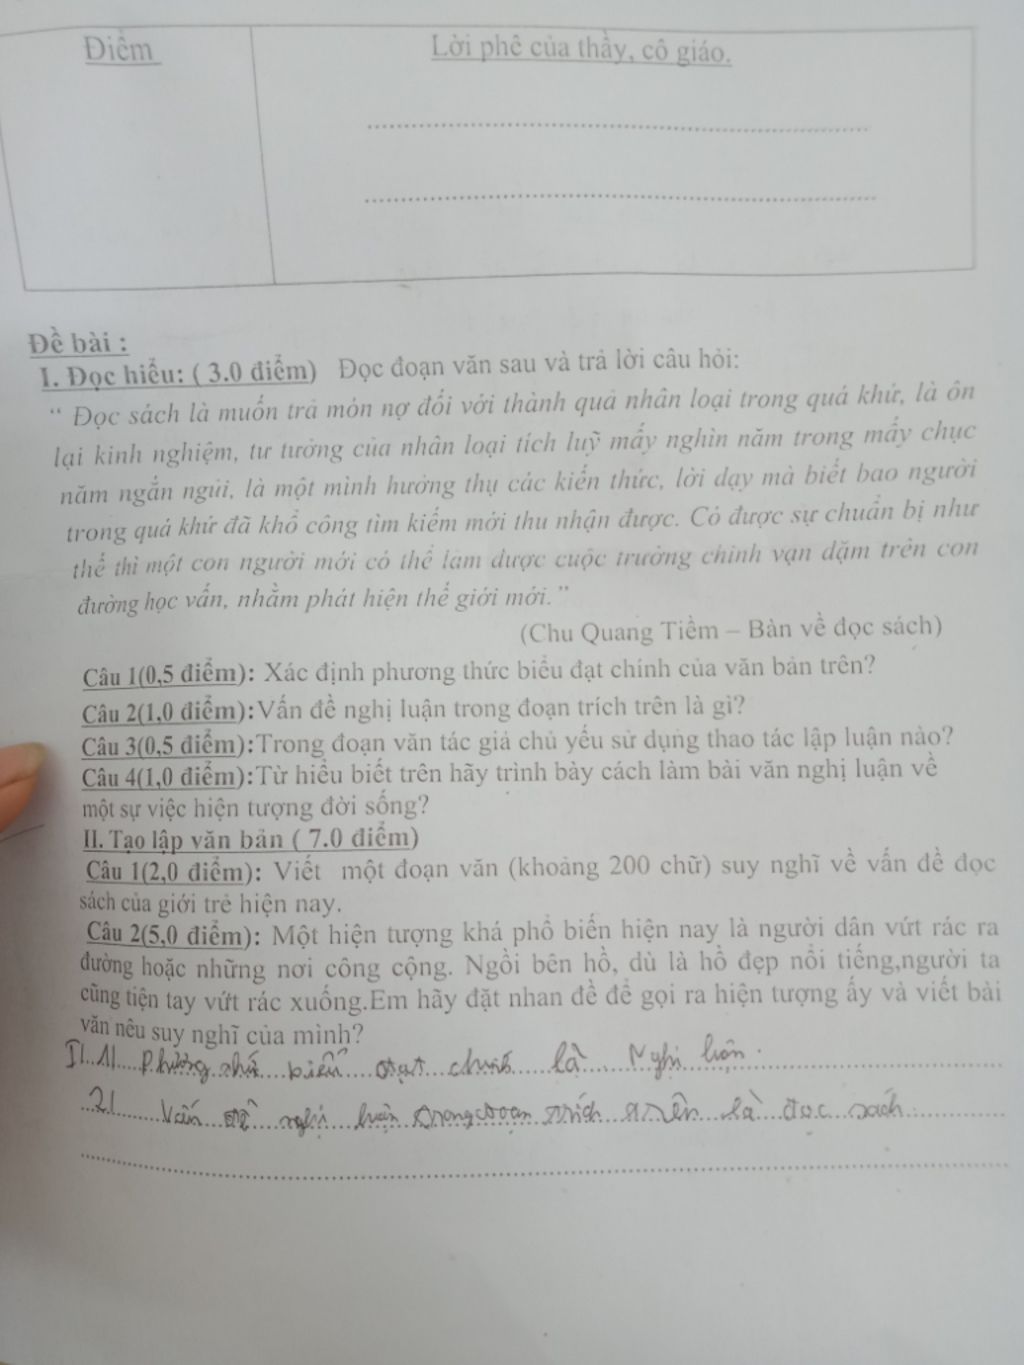 Điểm
Lời phê của thầy, cô giáo.
Đề bài :
I. Đọc hiểu: ( 3.0 điểm) Đọc đoạn văn sau và trả lời câu hỏi:
“ Đọc sách là muốn trả món nợ đối với thành quả nhân loại trong quá khứ, là ôn
lại kinh nghiệm, tư tưởng của nhân loại tích luỹ mấy nghìn năm trong mấy chục
năm ngắn ngủi, là một mình hưởng thụ các kiến thức, lời dạy mà biết bao người
trong quá khứ đã khổ công tìm kiếm mới thu nhận được. Có được sự chuẩn bị như
thế thì một con người mới có thể làm được cuộc trường chinh vạn dặm trên con
đường học vấn, nhằm phát hiện thế giới mới.”
(Chu Quang Tiềm – Bàn về đọc sách)
Câu 1(0,5 điểm): Xác định phương thức biểu đạt chính của văn bản trên?
Câu 2(1,0 điểm):Vấn đề nghị luận trong đoạn trích trên là gì?
Câu 3(0,5 điểm):Trong đoạn văn tác giả chủ yếu sử dụng thao tác lập luận nào?
Câu 4(1,0 điểm):Từ hiểu biết trên hãy trình bày cách làm bài văn nghị luận về
một sự việc hiện tượng đời sống?
II. Tạo lập văn bản ( 7.0 điểm)
Câu 1(2,0 điểm): Viết một đoạn văn (khoảng 200 chữ) suy nghĩ về vấn đề đọc
sách của giới trẻ hiện nay.
Câu 2(5,0 điểm): Một hiện tượng khá phổ biến hiện nay là người dân vứt rác ra
đường hoặc những nơi công cộng. Ngồi bên hồ, dù là hồ đẹp nổi tiếng,người ta
cũng tiện tay vứt rác xuống.Em hãy đặt nhan đề để gọi ra hiện tượng ấy và viết bài
văn nêu suy nghĩ của mình?
I. 1. Phương biểu đạt chính là Nghị luận.
2. Vấn đề nghị luận trong đoạn trích trên là đọc sách.